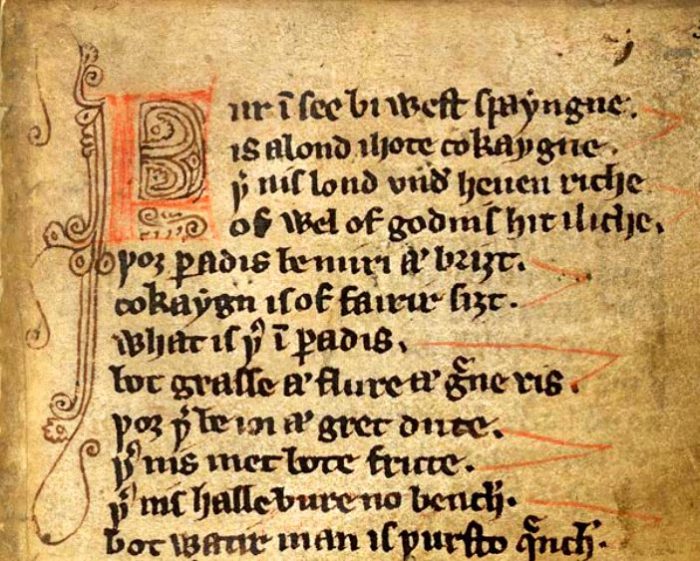 Fur ī see bi west spaẏngne.
is a lond ihote cokaẏgne.
þ͛ nis lond vnd͛ heuen riche
of wel of godnis hit iliche.
þoȝ ꝑadis be miri & briȝt.
cokaẏgn is of fairir siȝt.
what is þ͛ ī ꝑadis.
bot grasse & flure & g͛ne ris.
þoȝ þ͛ be ioi & gret dute.
þ͛ nis met bote frute.
þ͛ nis halle bure no bench.
bot watir man is þursto qͥnch.